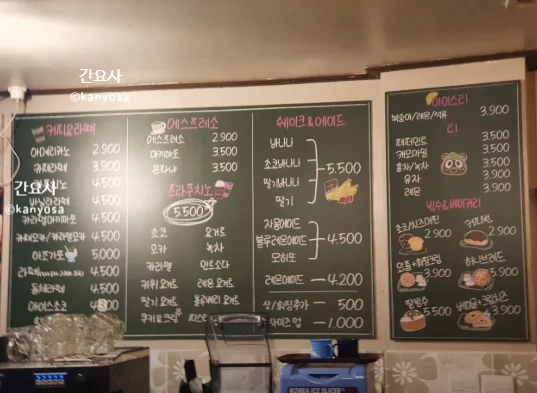 간요사
©kanyosa
커피&라떼
아메리카노 2.900
카페라떼 3.900
4.500
바닐라라떼 4.500
카라멜마끼아또 4.500
카페모카/카라멜모카 4.500
아포가토 5.000
4.500
4.500
아이스초코 4.500
간요사
©kanyosa
에스프레소
에스프레소 2.900
마끼아또 3.500
콘파나 3.500
프라푸치노
5.500
초코 요거트
모카 녹차
카라멜 민트초코
키위 요거트 레몬 요거트
딸기 요거트 블루베리 요거트
쿠키&크림
쉐이크&에이드
바나나
초코바나나
딸기바나나
딸기
5.500
자몽에이드
블루레몬에이드
모히또
4.500
레몬에이드 4.200
샷/휘핑추가 500
사이즈 업 1.000
아이스티
복숭아/레몬/석류 3.900
티
페퍼민트 3.500
캐모마일 3.500
홍차/녹차 3.500
유자 3.900
레몬 3.900
빙수&베이커리
초코/치즈머핀 2.900
커피번 2.900
와플+휘핑크림 3.900
허니브레드 5.900
팥빙수 5.500
베이글+크림치즈 3.900
KOREA ICE SLICER